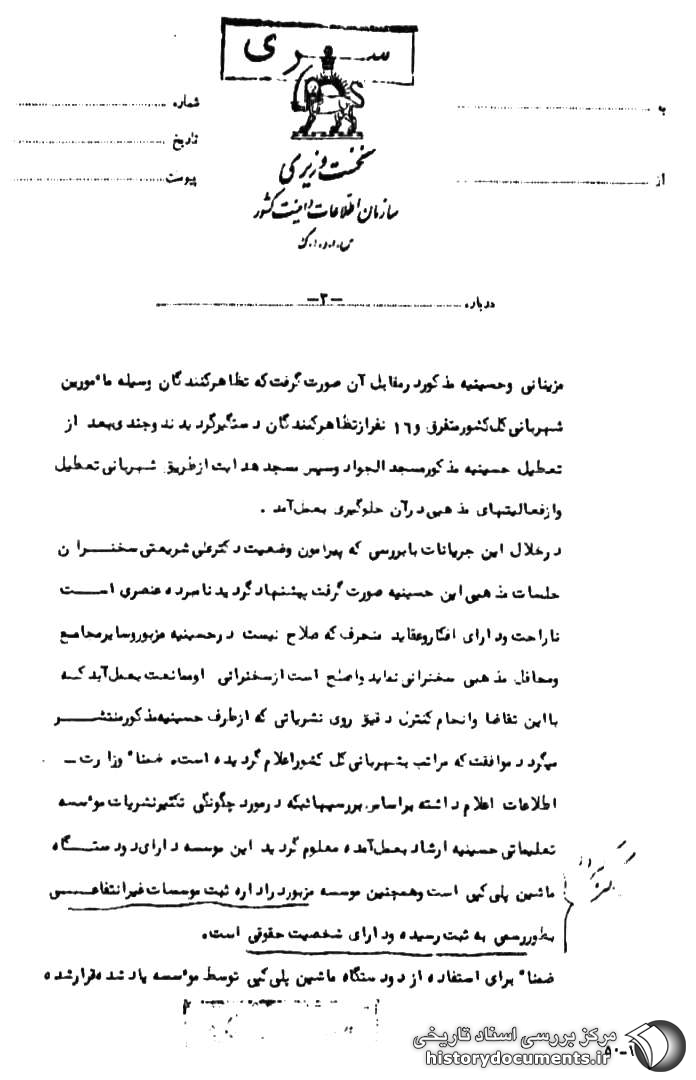 سری
به
شماره
تاریخ
از
پیوست
نخست وزیری
سازمان اطلاعات و امنیت کشور
س.ا.و.ا.ک
درباره
-۳-
مزینانی وحسینیه مذکوردرمقابل آن صورت گرفت که تظاهرکنندگان وسیله مأمورین
شهربانی کل کشورمتفرق و۱۶ نفرازتظاهرکنندگان دستگیرگردیدند وچندی بعد از
تعطیل حسینیه مذکورمسجد الجواد وسپس مسجد هدایت ازطریق شهربانی تعطیل
وازفعالیتهای مذهبی درآن جلوگیری بعمل آمد .
درخلال این جریانات با بررسی که پیرامون وضعیت دکترعلی شریعتی سخنران
جلسات مذهبی این حسینیه صورت گرفت پیشنهاد گردید نامبرده عنصری است
ناراحت ودارای افکاروعقاید منحرف که صلاح نیست درحسینیه مزبوروسایرمجامع
ومحافل مذهبی سخنرانی نماید واصلح است ازسخنرانی اوممانعت بعمل آید که
با این تقاضا وانجام کنترل دقیق روی نشریاتی که ازطرف حسینیه مذکورمنتشر
میگردد موافقت که مراتب بشهربانی کل کشوراعلام گردیده است. ضمناً وزارت -
اطلاعات اعلام داشته براساس بررسیهائیکه درمورد چگونگی تکثیرنشریات موسسه
تعلیماتی حسینیه ارشاد بعمل آمده معلوم گردید این موسسه دارای دودستگاه
ماشین پلی کپی است وهمچنین موسسه مزبوردراداره ثبت موسسات غیرانتفاعی
بطوررسمی به ثبت رسیده ودارای شخصیت حقوقی است.
ضمناً برای استفاده از دودستگاه ماشین پلی کپی توسط موسسه یادشده قرارشده
۵۰-۱
مرکز بررسی اسناد تاریخی
historydocuments.ir